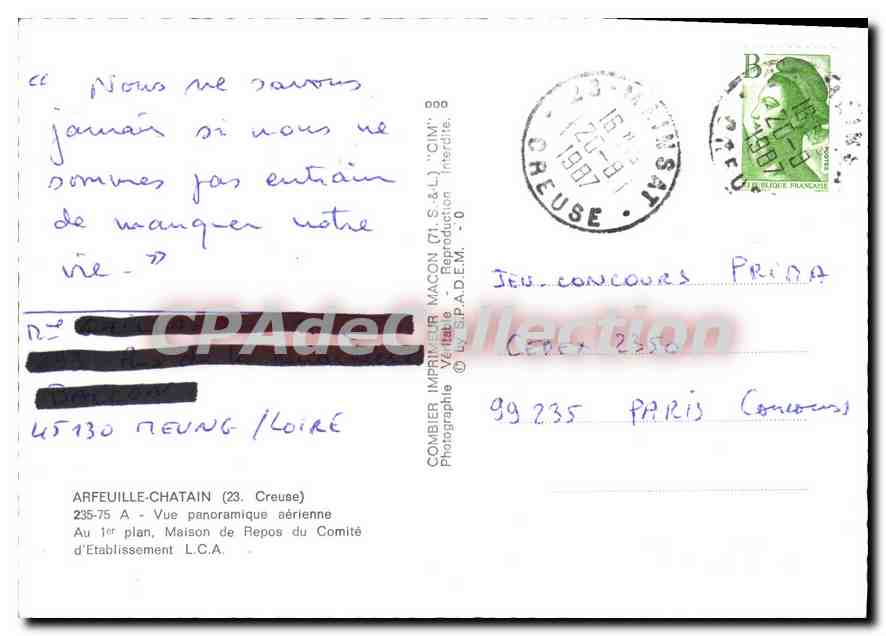 " Nous ne savons
jamais si nous ne
sommes pas entrain
de manquer notre
vie - "
Mme
45130 MEUNG / LOIRE
ARFEUILLE-CHATAIN (23. Creuse)
235-75 A - Vue panoramique aérienne
Au 1er plan, Maison de Repos du Comité
d'Etablissement L.C.A.
COMBIER IMPRIMEUR MACON (71. S.-&-L.) "CIM"
Photographie Véritable - Reproduction Interdite.
© by S.P.A.D.E.M. - 0
23 - MAINSAT
16 H
20-8
1987
CREUSE
B
REPUBLIQUE FRANÇAISE
JEU-CONCOURS PRIMA
CEDEX 2350
99235 PARIS CONCOURS
CPAdeCollection